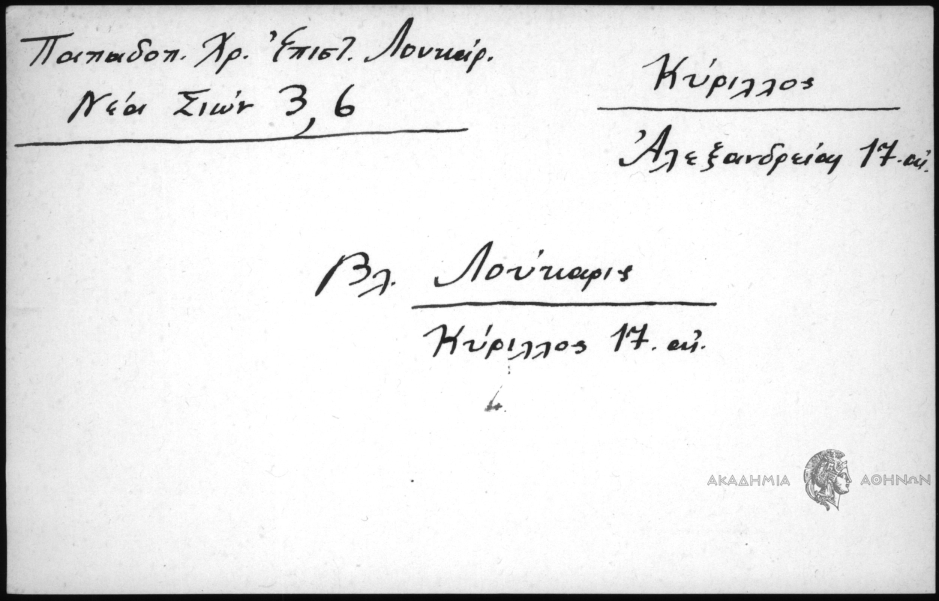 Παπαδοπ. Χρ. Ἐπιστ. Λουκάρ.
Νέα Σιών 3, 6
Κύριλλος
Ἀλεξανδρείας 17. αἰ.
Βλ. Λούκαρις
Κύριλλος 17. αἰ.
ΑΚΑΔΗΜΙΑ ΑΘΗΝΩΝ